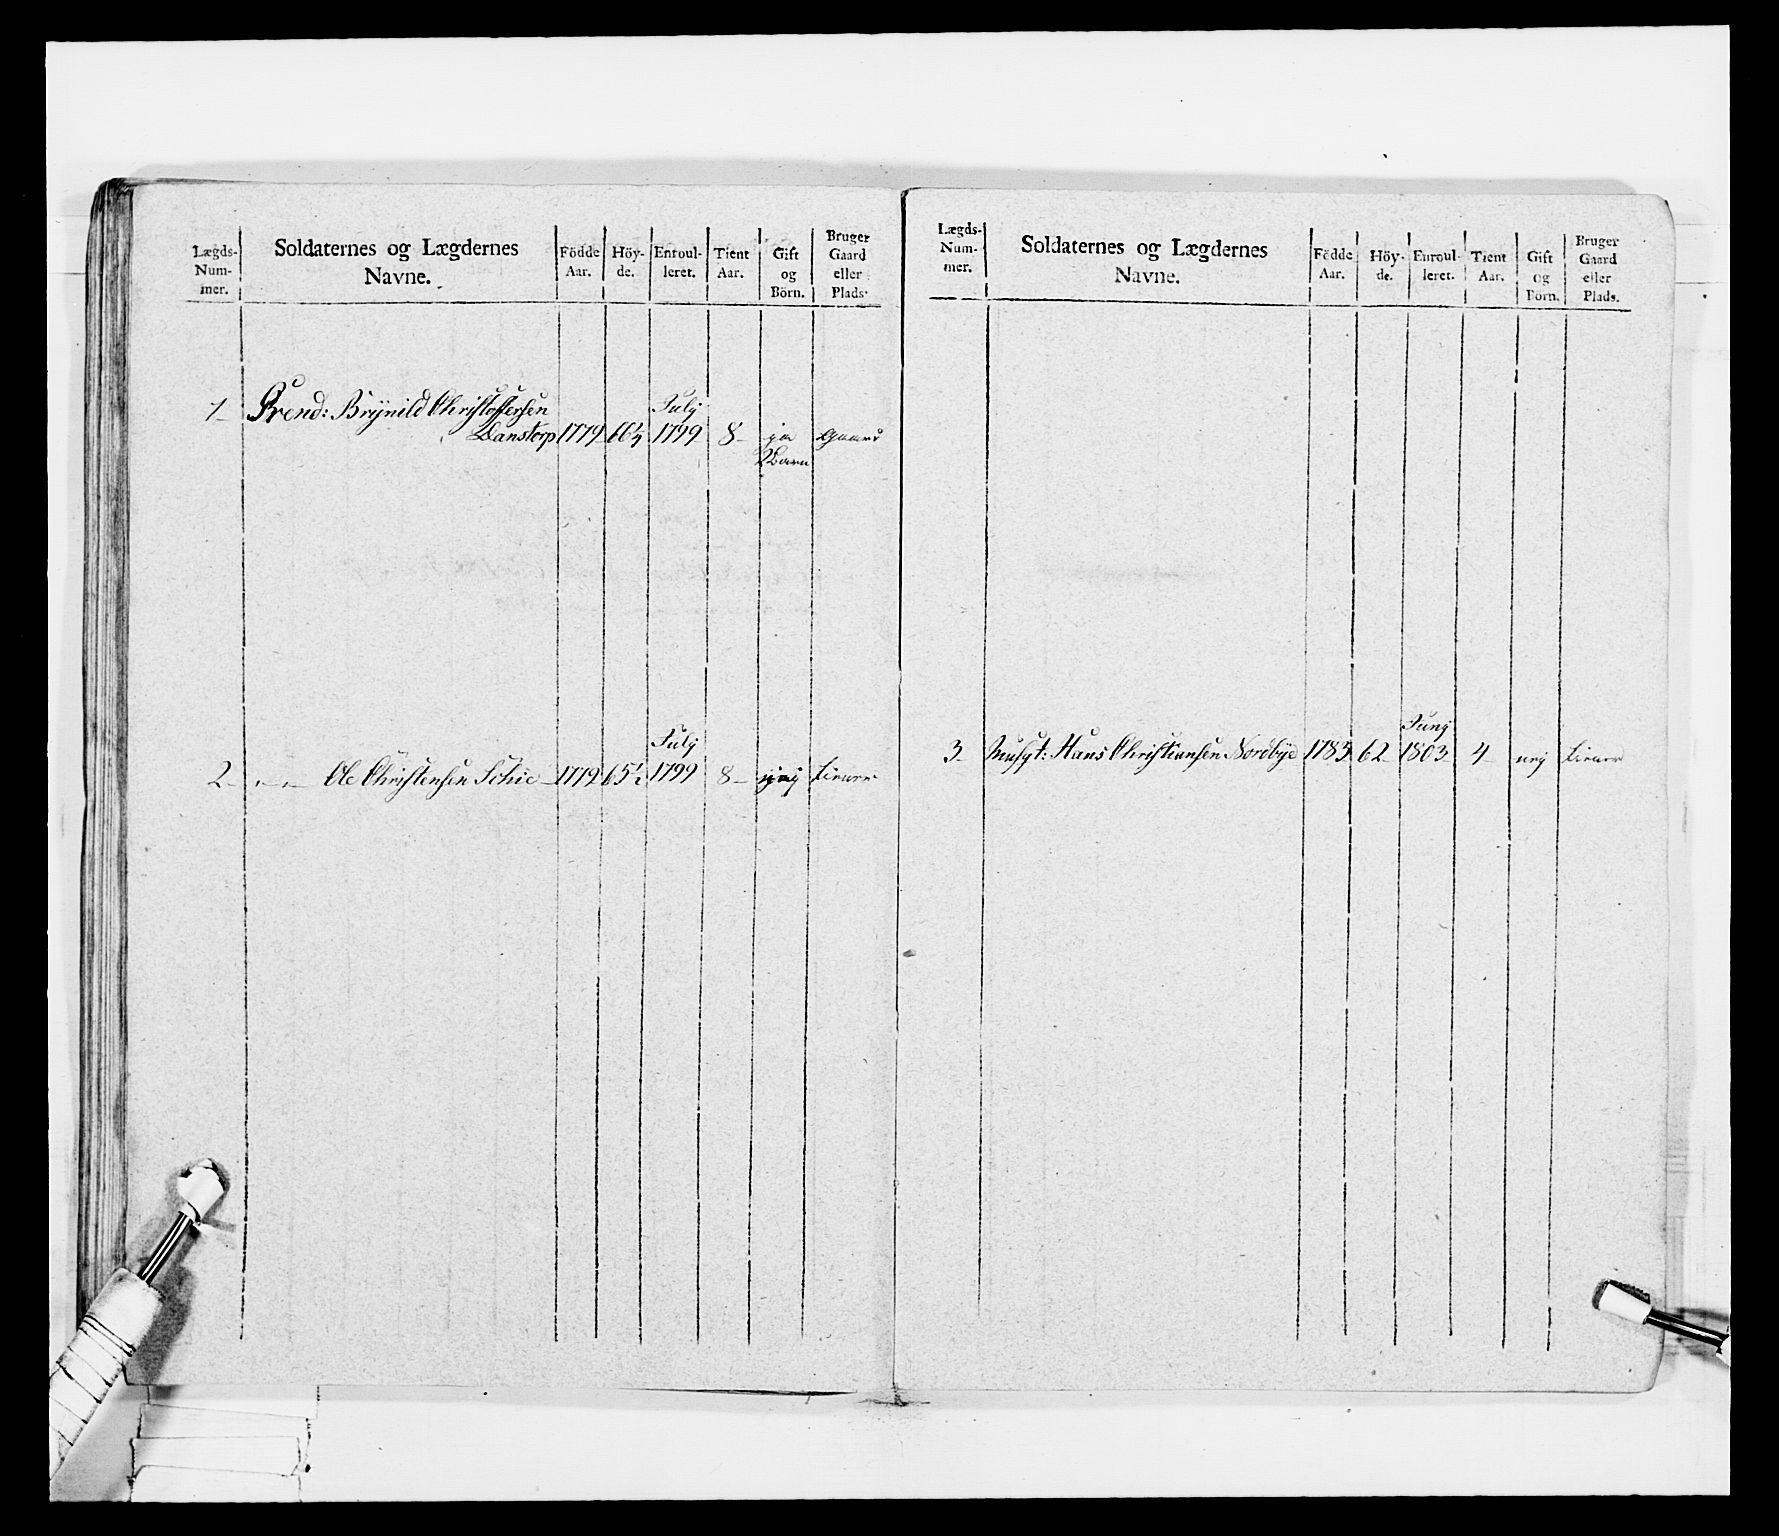 Lægds- Num- mer.
Soldaternes og Lægdernes Navne.
Födde Aar.
Höy- de.
Enroul- leret.
Tient Aar.
Gift og Börn.
Bruger Gaard eller Plads.
July
1 Grend: Brynild Christoffersen
Danstorp 1779 66½ 1799 8 ja Gaard
2 Barn
July
2 Ole Christensen Schie 1779 65½ 1799 8 nej tiener
Lægds- Num- mer.
Soldaternes og Lægdernes Navne.
Födde Aar.
Höy- de.
Enroul- leret.
Tient Aar.
Gift og Börn.
Bruger Gaard eller Plads.
Junj
3 Musqt: Hans Christiansen Nordbye 1783 62 1803 4 nej tiener